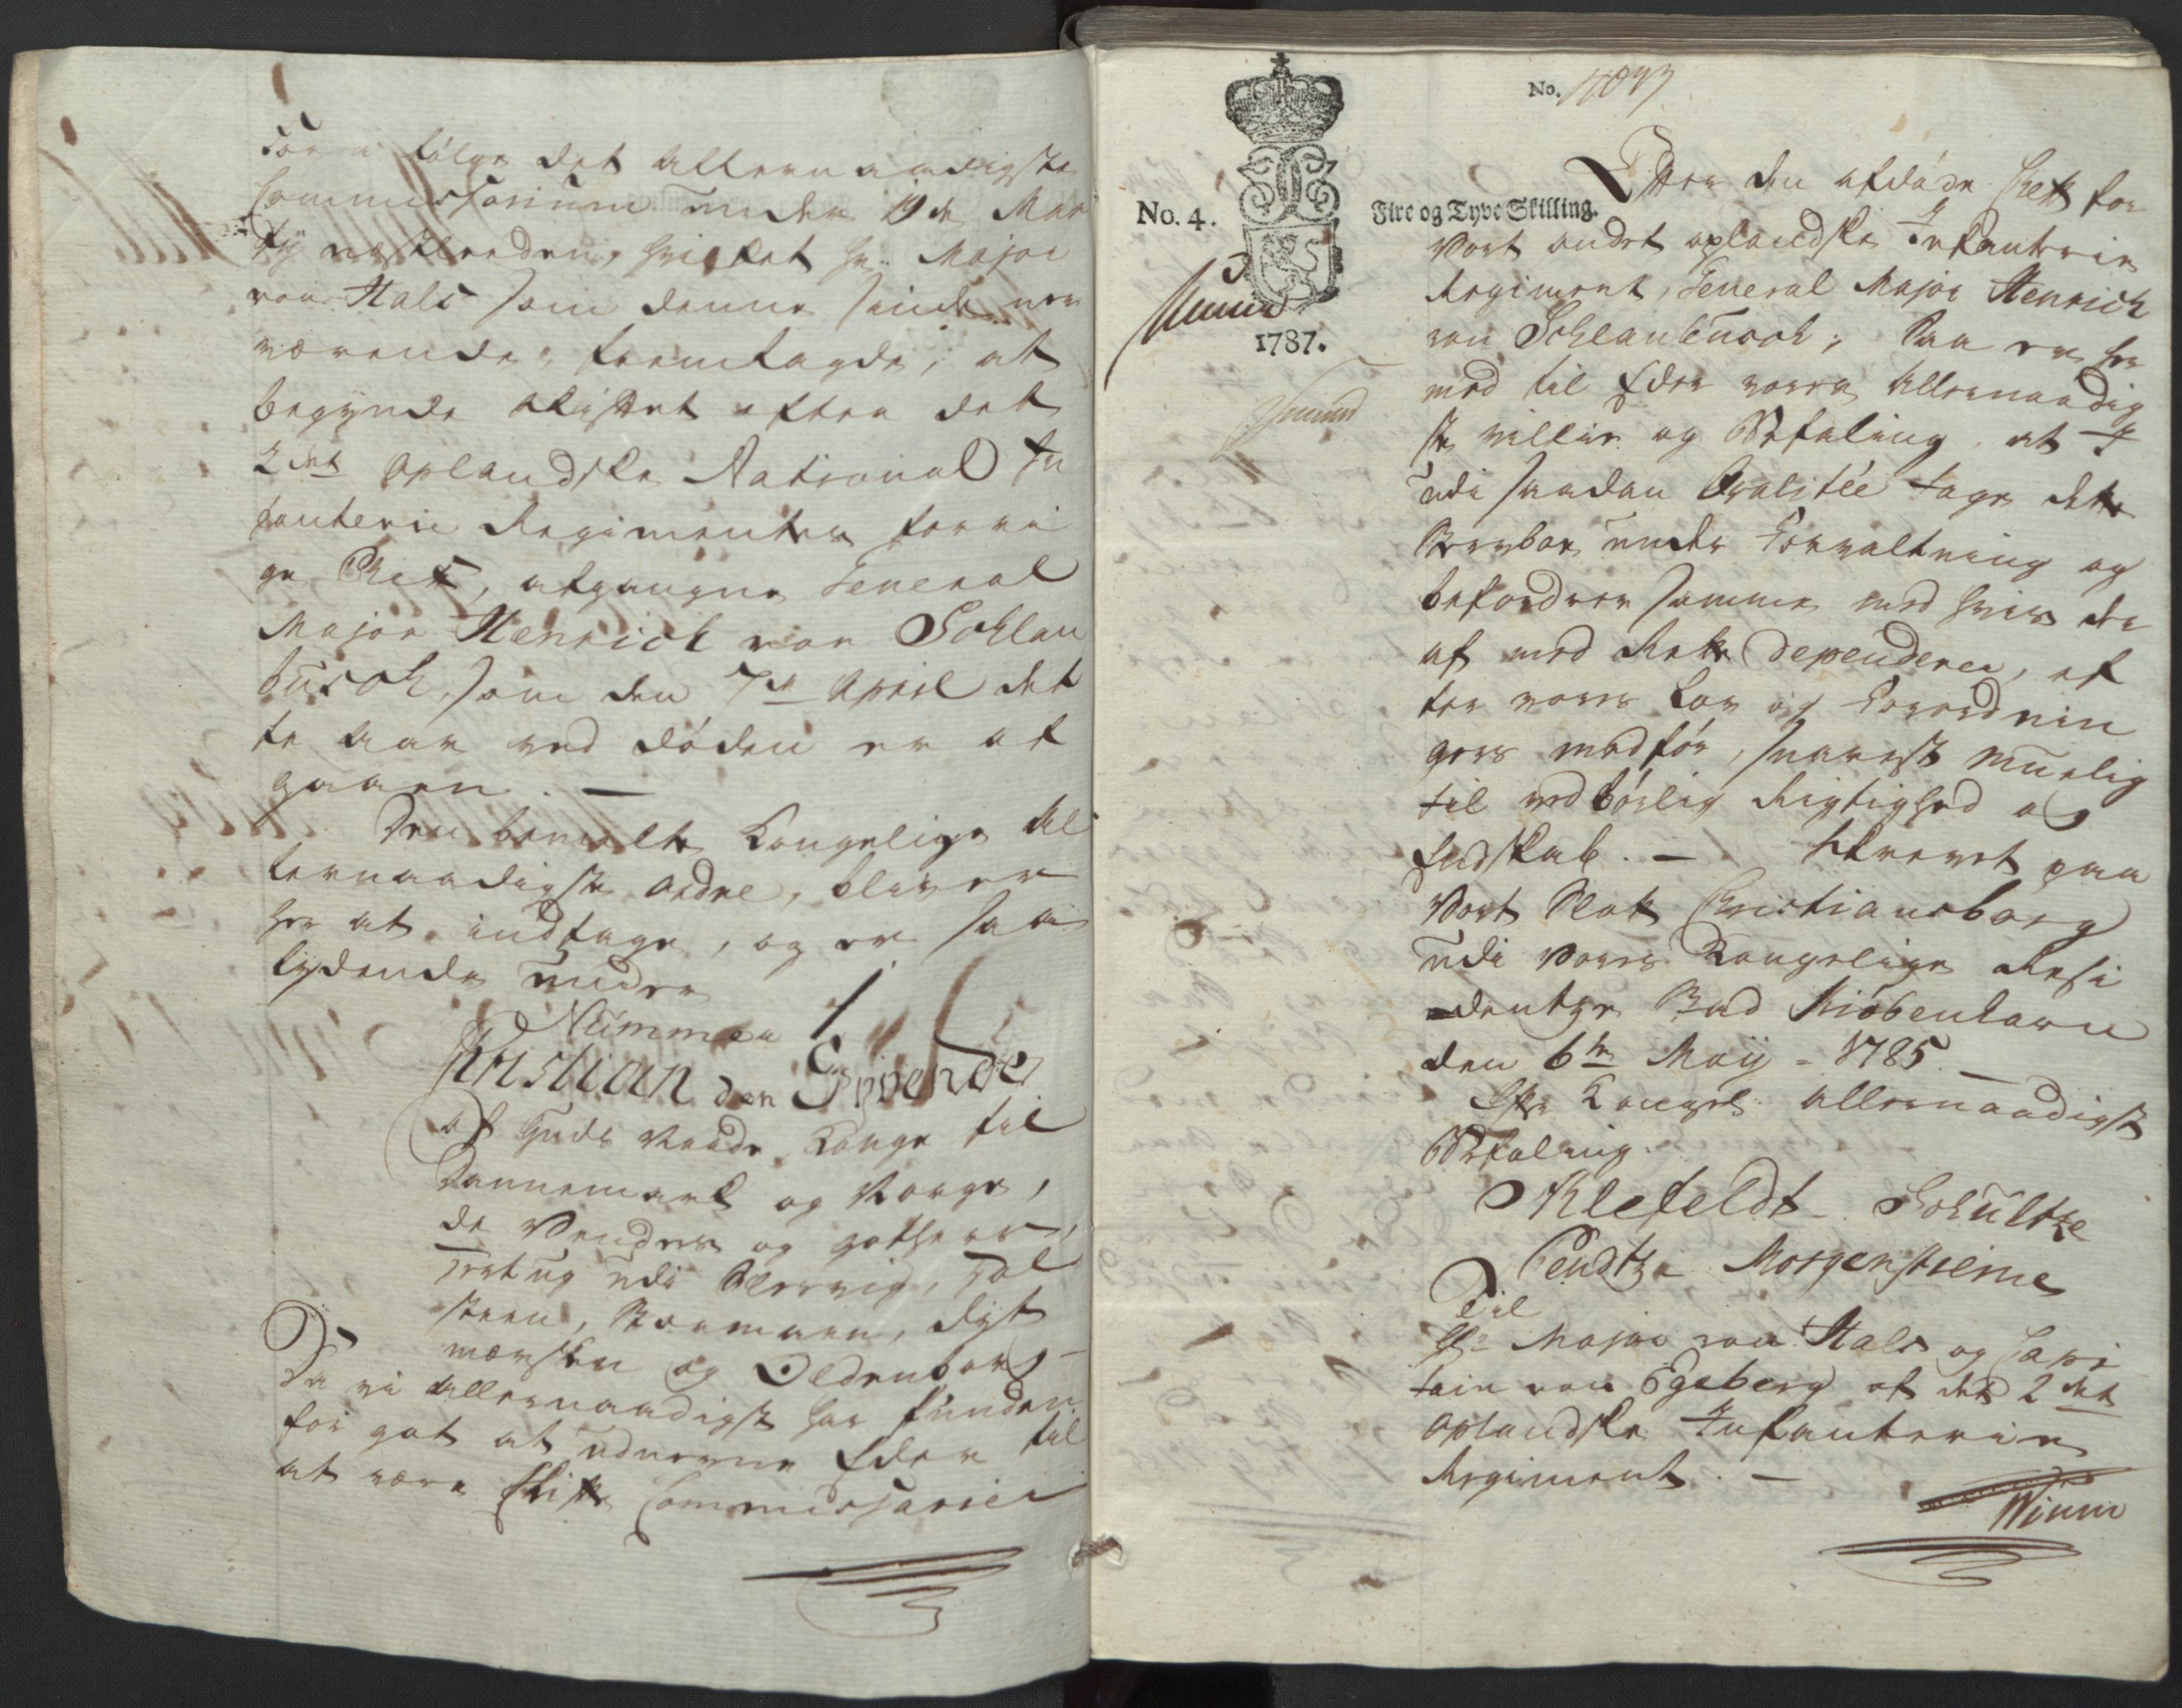 for i følge det allernaadigste
Commissorium under 19de Mar
tij næstleeden, hvilket Hr. Major
von Hals som denne sinde nær
værende, fremlagde, at
begynde Skiftet efter det
2det Oplandske National In
fanterie Regimentes forri
ge Chef, afgangne General
Major Henrich von Schlan
busch, som den 7de April det
te Aar ved døden er af
gaaen. —
Den bemelte Kongelige Al
lernaadigste Ordre, bliver
her at indtage, og er saa
lydende under
Nummer 1
Christian den Syvende
af Guds Naade Konge til
Dannemark og Norge,
de Venders og Gothers,
Hertug udi Slesvig, Hol
steen, Stormarn, Dyt
mersken og Oldenborg —
Da vi Allernaadigst har funden
for got at udnevne Eder til
at være Skifte Commissarier
No. 4.
Fire og Tyve Skilling.
1787.
No.
Efter den afdøde Chef for
Vort andet oplandske Infanterie
Regiment, General Major Henrich
von Schlanbusch; Saa er her
med til Eder vores Allernaadig
ste villie og Befaling, at I
udi saadan Qvalitée tage dette
Sterboe under Forvaltning og
befordrer samme med hvis der
af med Rette dependerer, ef
ter vores Lov og Forordnin
gers medfør, snarest muelig
til vedbørlig Rigtighed og
Endskab. — Skrevet paa
Vort Slot Christiansborg
udi Vores Kongelige Resi
dentze Stad Kiøbenhavn
den 6te Maij 1785. —
Efter Kongel: allernaadigst
Befaling.
Klefeldt Schultze
Sendtze Morgenstierne
Til
Hr. Major von Hals og Capi
tain von Egeberg af det 2det
Oplandske Infanterie
Regiment. —